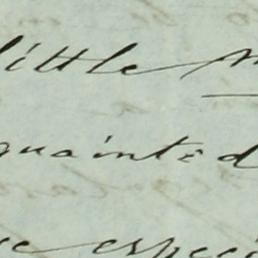 little
quainted
especi